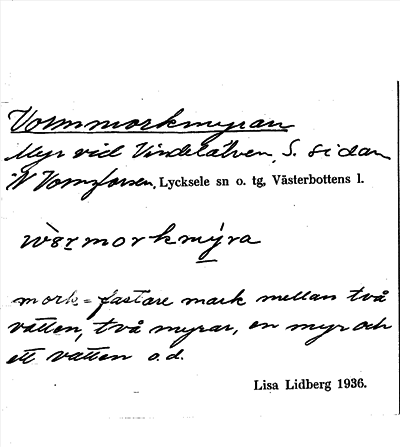 Vormmorkmyran
Myr vid Vindelälven, S. sidan
N Vormforsen, Lycksele sn o. tg, Västerbottens l.
mork = fastare mark mellan två
vatten, två myrar, en myr och
ett vatten o.d.
Lisa Lidberg 1936.